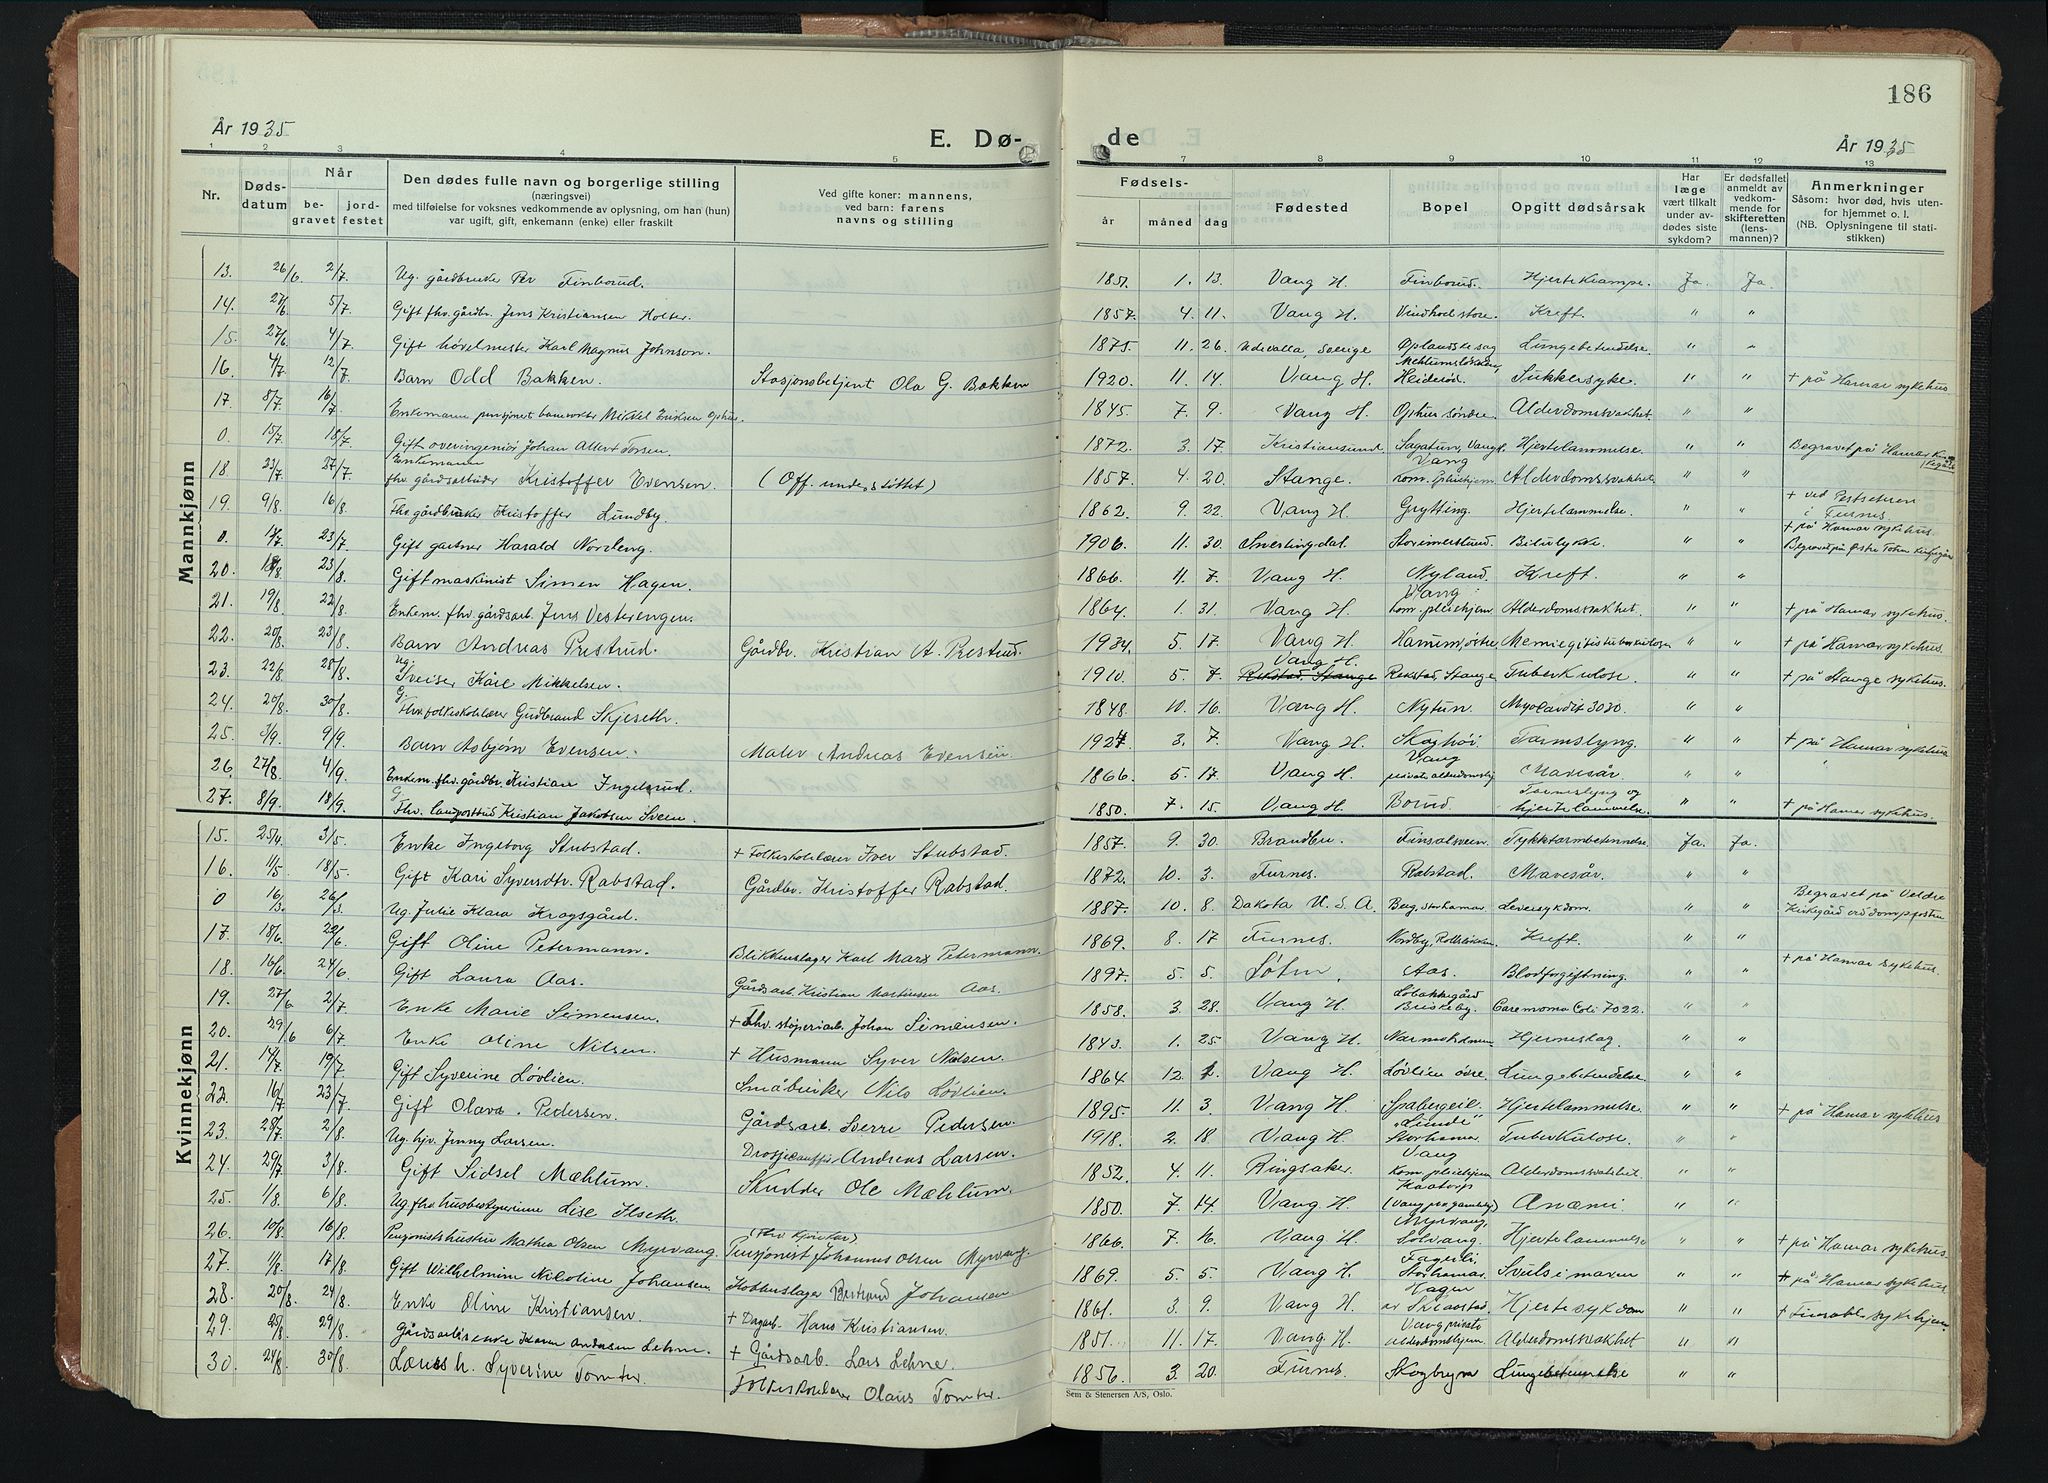 186
År 1935
E. Dø-
de
År 1935
1 2 3 4 5 7 8 9 10 11 12 13
Nr.
Døds-
datum
Når
be-
gravet
jord-
festet
Den dødes fulle navn og borgerlige stilling
(næringsvei)
med tilføielse for voksnes vedkommende av oplysning, om han (hun)
var ugift, gift, enkemann (enke) eller fraskilt
Ved gifte koner: mannens,
ved barn: farens
navn og stilling
Fødsels-
år måned dag
Fødested
Bopel
Opgitt dødsårsak
Har
læge
vært tilkalt
under av-
dødes siste
sykdom?
Er dødsfallet
anmeldt av
vedkom-
mende for
skifteretten
(lens-
mannen)?
Anmerkninger
Såsom: hvor død, hvis uten-
for hjemmet o. l.
(NB. Oplysningene til stati-
stikken)
Mannkjønn
13. 26/6 2/7. Ug. gårdbruker Per Finborud. 1851. 1. 13. Vang H. Finborud. Hjerteklampe. Ja. Ja.
14. 27/6 5/7. Gift fhv. gårdbr. Jens Kristiansen Holter. 1857. 4. 11. Vang H. Kreft. " "
15. 27/6 4/7. Gift høvelmester Karl Magnus Johnson. 1875. 11. 26. Udevalla, Sverige Oplandske sag Lungebetendelse. " "
16. 4/7. 12/7 Barn Odd Bakken. Stasjonsbetjent Ola G. Bakken 1920. 11. 14. Vang H. Sukkersyke. " " + på Hamar sykehus.
17. 8/7. 16/7 Enkemann pensjonert banevokter Mikkel Eriksen Ophus. 1845. 7. 9. Vang H. Ophus søndre. Alderdomssvakhet. " "
0. 15/7. 18/7. Gift overingeniør Johan Albert Torsen. 1872. 3. 17. Kristiansund. Sagatun, Vang H. Hjertelammelse. " " Begravet på Hamar Kirkegård
18. 23/7. 27/7. Enkemann fhv. gårdsarbeider Kristoffer Evensen. (Off. understøttet) 1857. 4. 20. Stange. Vang kom. pleiehjem. Alderdomssvakhet " "
19. 9/8. 16/8. Fhv. gårdbruker Kristoffer Lundby. 1862. 9. 22. Vang H. Grytting. Hjertelammelse. " " + ved Pestsetren i Furnes.
0. 23/7. Gift gartner Harald Nordeng. 1906. 11. 30. Snertingdal. Storimerslund. Bilulykke. " " + på Hamar sykehus. Begravet på Østre Toten Kirkegård
20. 18/8. 23/8. Gift maskinist Simen Hagen. 1866. 4. 7. Vang H. Nyland. Kreft. " "
21. 19/8. 22/8. Enkem. fhv. gårdsarb. Jens Vesterengen. 1864. 1. 31. Vang H. Vang Kom. pleiehjem Alderdomssvakhet. " " + på Hamar sykehus.
22. 20/8. 23/8. Barn Andreas Prestrud. Gårdbr. Kristian A. Prestrud. 1934. 5. 17. Vang H. " " + på Hamar sykehus.
23. 22/8. 28/8. Ug. Sveiser Kåre Mikkelsen. 1910. 5. 7. Vang H. Rekstad, Stange Rekstad, Stange Tuberkulose. " " + på Stange sykehus.
24. 20/8. 30/8. G. Fhv. folkeskolelærer Gudbrand Skjeseth. 1848. 10. 16. Vang H. Nytun. Myocardit 3020. " "
25. 3/9. 9/9. Barn Asbjørn Evensen. Maler Andreas Evensen. 1927. 3. 7. Vang H. Skaghøi. Tarmslyng. " " + på Hamar sykehus
26. 27/8. 4/9. Enkem. fhv. gårdbr. Kristian Ingelsrud. 1866. 5. 17. Vang H. Vang private aldershjem. Mavesår. " "
27. 8/9. 18/9. G. Fhv. landpostbud Kristian Jakobsen Sveen. 1850. 7. 15. Vang H. Borud. Tarmslyng og hjertelammelse. " " + på Hamar sykehus.
Kvinnekjønn
15. 25/4. 3/5. Enke Ingeborg Stubstad. + Folkeskolelærer Iver Stubstad. 1857. 9. 30. Brandbu. Finsalveien. Tykktarmbetennelse. Ja. Ja.
16. 11/5. 18/5. Gift Kari Syversdtr. Rabstad. Gårdbr. Kristoffer Rabstad. 1872. 10. 3. Furnes. Rabstad. Mavesår. " "
0 16/3. 26/3. Ug. Julie Klara Krogsgård. 1887. 10. 8. Dakota U.S.A. Berg, Storhamar. Leversykdom. " " Begravet på Veldre Kirkegård
17. 18/6. Gift Oline Petermann. Blikkenslager Karl Marx Petermann. 1869. 8. 17 Furnes. Kreft. " "
18. 16/6. 24/6. Gift Laura Aas. Gårdsarb. Kristian Martinsen Aas. 1897. 5. 5. Løten. Aas. Blodforgiftning. " " + på Hamar sykehus.
19. 27/6 2/7. Enke Marie Simensen. + Fhv. støperiarb. Johan Simensen. 1858. 3. 28. Vang H. Briskeby. Caremoma Coli 7022. " "
20. 29/6 6/7. Enke Oline Nilsen. + Husmann Syver Nilsen. 1843. 1. 25 Vang H. Hjerneslag. " "
21. 14/7. 19/7. Gift Syverine Løvlien. Småbruker Nils Løvlien. 1864. 12. 1. Vang H. Løvlien øvre. Lungebetendelse. " "
22. 16/7 23/7. Gift Olava Pedersen. Gårdsarb. Sverre Pedersen. 1895. 11. 3. Vang H. Spabergeie. Hjertelammelse. " " + på Hamar sykehus
23. 28/7. 2/8. Ug. hjv. Jenny Larsen. Drosjechauffør Andreas Larsen. 1918. 2. 18. Vang H. "Lunde" Storhamar. Tuberkulose. " "
24. 29/7. 3/8. Gift Sidsel Mæhlum. Skredder Ole Mæhlum. 1852. 4. 11. Ringsaker. Vang Kom. pleiehjem Alderdomssvakhet. " "
25. 1/8. 6/8. Ug. fhv. husbestyrerinne Lise Ilseth. 1850. 7. 14. Vang H. Kaatorp Anæmi. " "
26. 10/8. 16/8. Pensjonistshustru Mathea Olsen Myrvang. Pensjonist Johannes Olsen Myrvang. 1866. 7. 16. Vang H. Myrvang, Solvang. Hjertelammelse " " + på Hamar sykehus.
27. 11/8. 17/8. Gift Wilhelmine Nicoline Johansen. Kobberslager Bertrand Johansen 1869. 5. 5. Vang H. Fagerli, Storhamar. Svulst i maven " " + på Hamar sykehus.
28. 20/8. 24/8. Enke Oline Kristiansen. + Dagarb. Hans Kristiansen. 1861. 3. 9. Vang H. Hagen av Skraastad. Hjertesykdom " " + Finsahl sykehjem.
29. 25/8. 29/8. Gårdsarbeiderenke Karen Andersen Lehne. + Gårdsarb. Lars Lehne. 1851. 11. 17. Vang H. Vang private alderdomshjem. Alderdomssvakhet " "
30. 24/8. 30/8. Syverine Tomter. Folkeskolelærer Olaus Tomter. 1856. 3. 20. Furnes. Skogbryn Lungebetennelse " "
Sem & Stenersen A/S, Oslo.